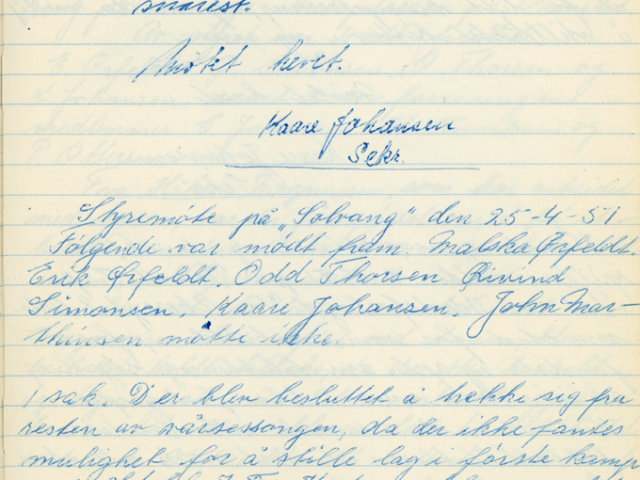 snarest.
Møtet hevet.
Kaare Johansen
Sekr.
Styremöte på „Solvang" den 25-4-51.
Følgende var mödt fram. Malska Ørfeldt.
Erik Ørfeldt. Odd Thorsen Øivind
Simonsen. Kaare Johansen. John Mar-
thinsen møtte ikke.
1 sak. Der blev besluttet å trekke sig fra
resten av vårsessongen, da der ikke fantes
mulighet for å stille lag i förste kamp